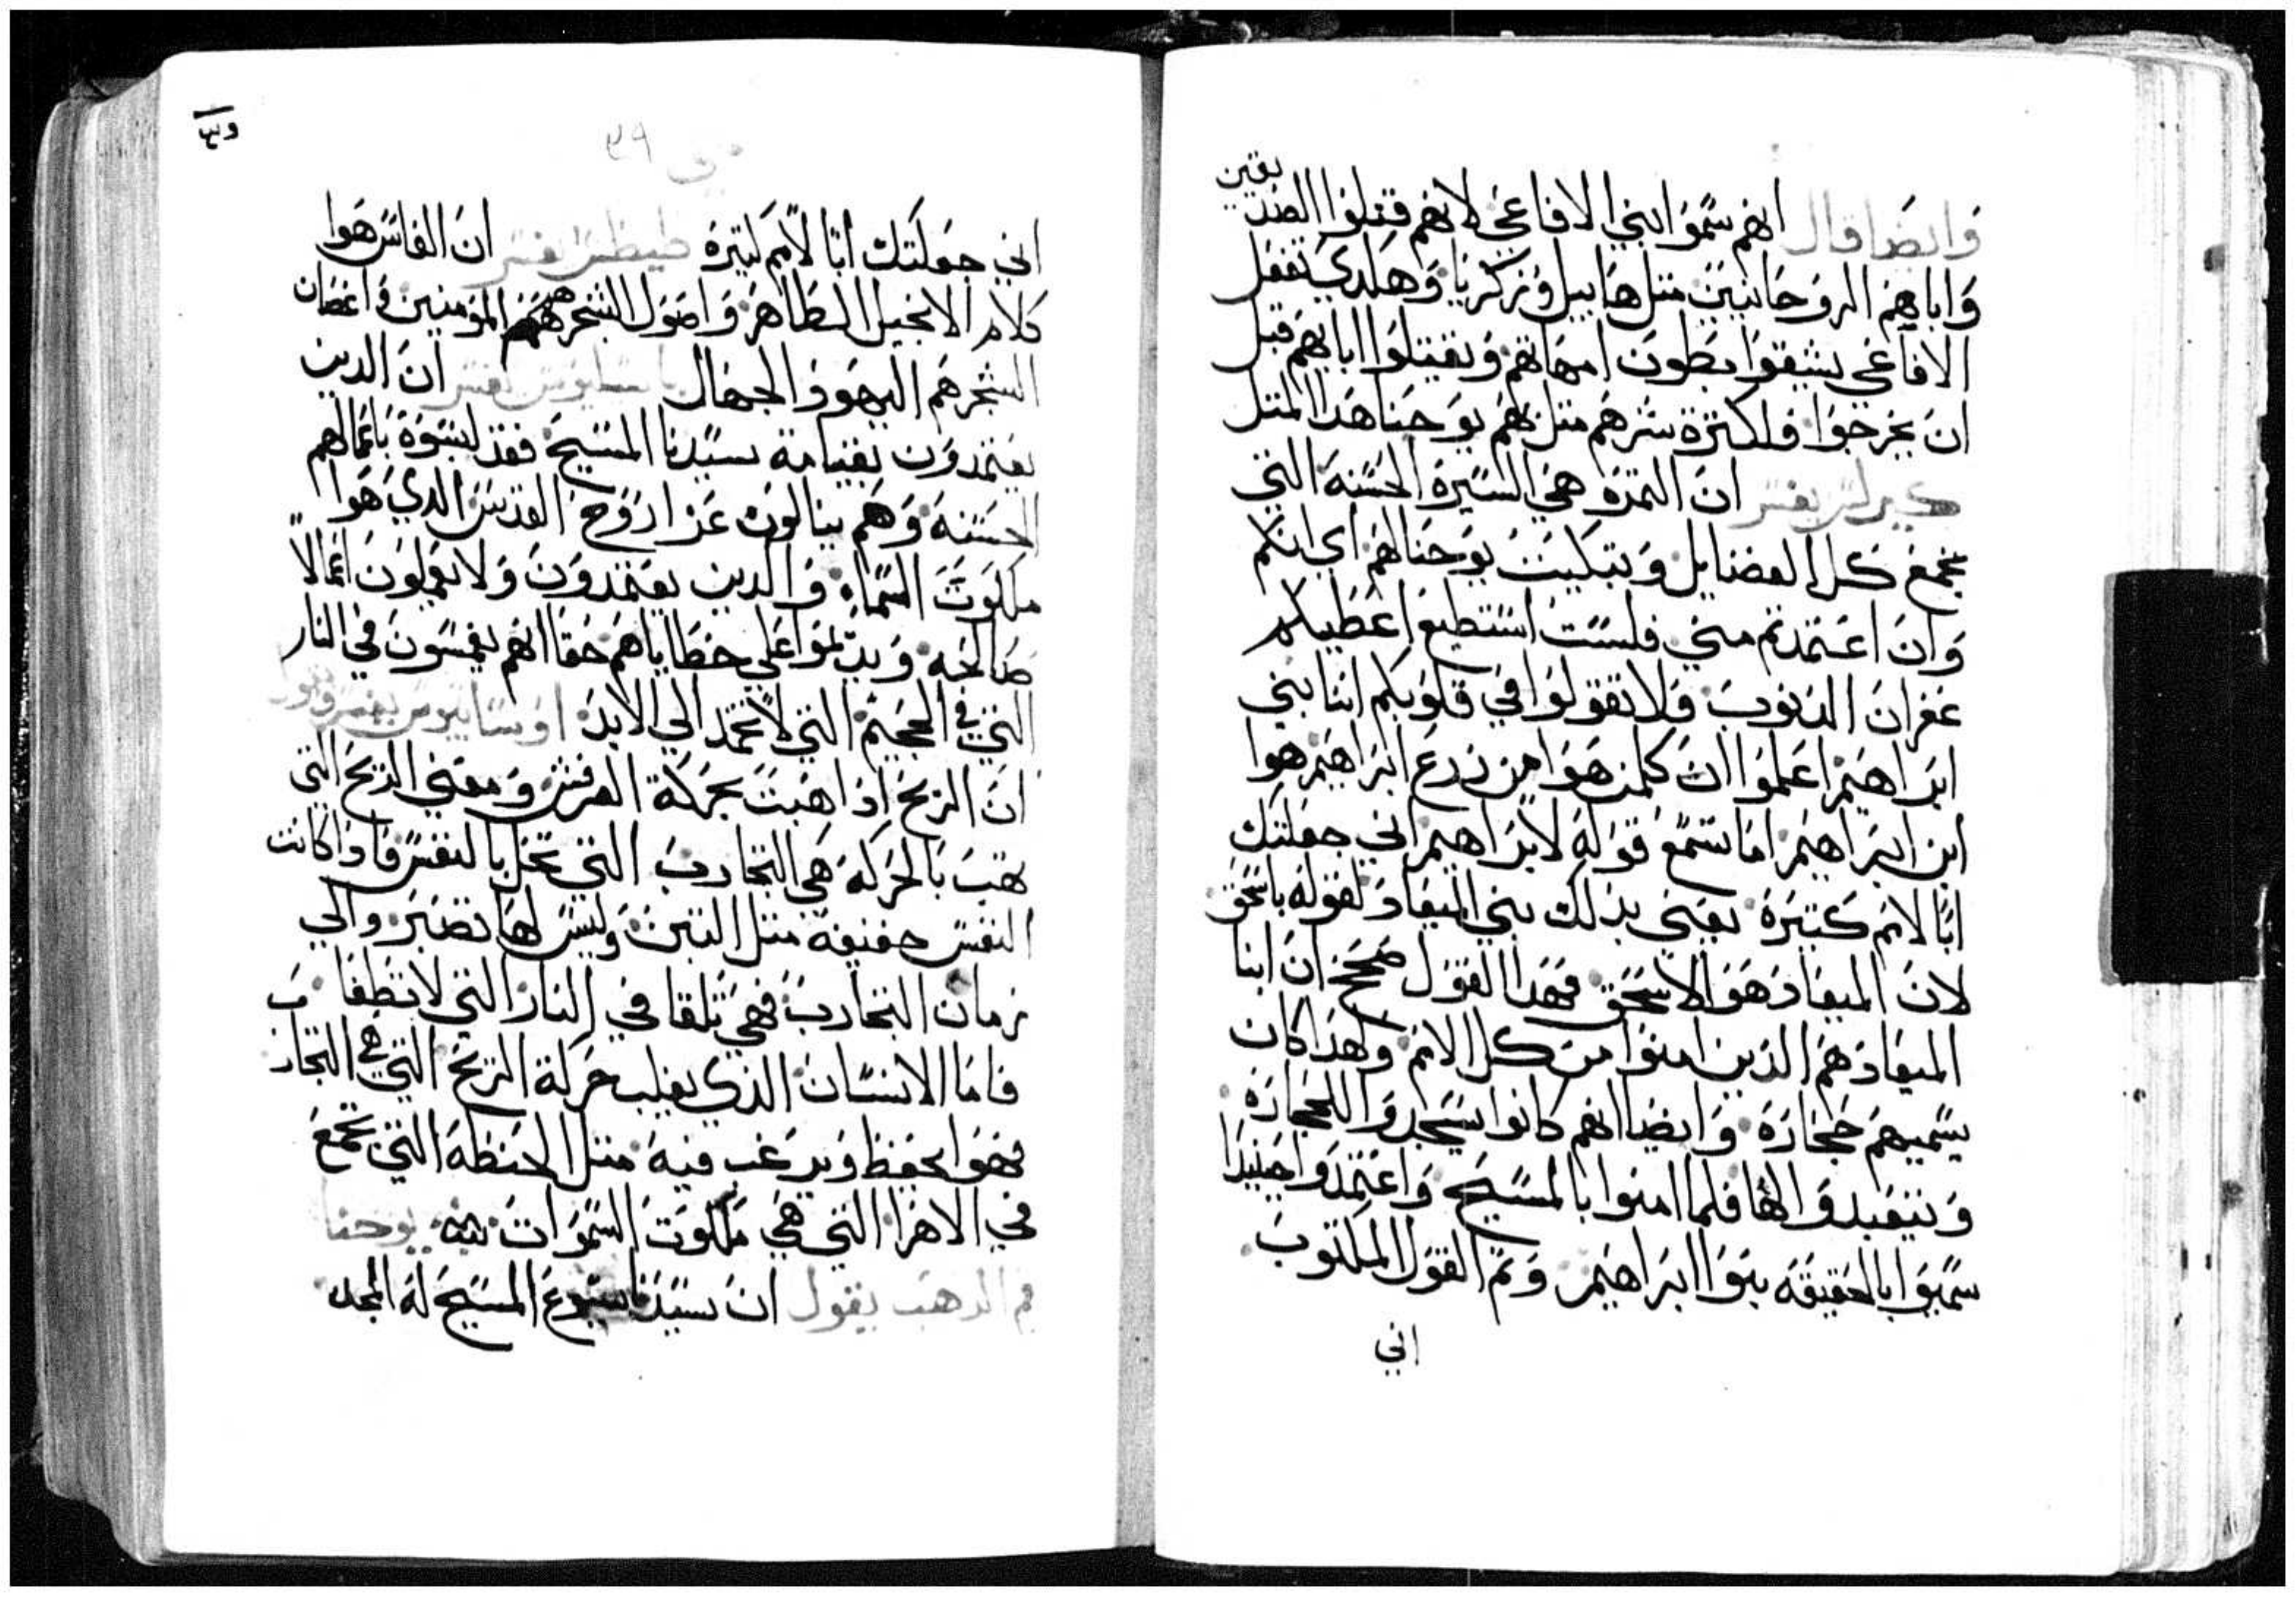 وايضا قال انهم سموا ابني الافاعي لانهم قتلوا الصديقين
واباهم الروحانيين متل هابيل وزكريا وهكدي تفعل
الافاعي يشقوا بطون امهاتهم ويقتلوا اباتهم قبل
ان يخرجوا فلكترة شرهم متل لهم يوحنا هدا المتل
كيرلس يفسر ان التمرة هي السيرة الحسنة التي
تجمع كل الفضايل وتبكيت يوحنا لهم اي انكم
وان اعتمدتم مني فلست استطيع اعطيكم
غفران الذنوب ولا تقولوا في قلوبكم اننا بني
ابراهيم اعلموا ان كلمن هوا من زرع ابراهيم هوا
ابن ابراهيم اما تسمع قوله لابراهيم اني جعلتك
ابا لامم كتيرة يعني بذلك بني الميعاد لقوله باسحق
لان الميعاد هو لاسحق فهدا القول صحح ان ابنا
الميعاد هم الذين امنوا من كل الامم ولهدا كان
يسميهم حجارة وايضا انهم كانوا يسجدوا للحجارة
ويتعبدوا لها فلما امنوا بالمسيح واعتمدوا حينيدا
سميوا بالحقيقه بنوا ابراهيم وتم القول المكتوب
اني
٣٩
٢٩
اني جعلتك ابا لامم كتيرة طيطس يفسر ان الفاس هوا
كلام الانجيل الطاهر واصول الشجر هم المومنين واغصان
الشجر هم اليهود الجهال باسيليوس يفسر ان الدين
يعتمدون بقيامة سيدنا المسيح فقد لبسوه باعمالهم
الحسنه وهم ينالون عز اروح القدس الدي هوا
ملكوت السماء والدين يعتمدون ولا يعملون اعمالا
صالحه ويدموا على خطاياهم حقا انهم يغمسون في النار
التي في الجحيم التي لا تخمد الي الابد اوسابيوس يفسر ويقول
ان الريح اذا هبت بحركة الرفش ومعني الريح التي
تهب بالحركة هي التجارب التي تحل بالنفس فاذا كانت
النفس خفيفه متل التبن وليس لها تصبر والي
زمان التجارب فهي تلقا في النار التي لا تطفا
فاما الانسان الذي يغلب حركة الريح التي هي التجارب
فهو يحفظ ويرغب فيه متل الحنطة التي تجمع
في الاهرا التي هي ملكوت السموات يوحنا
فم الدهب يقول ان سيدنا يسوع المسيح له المجد